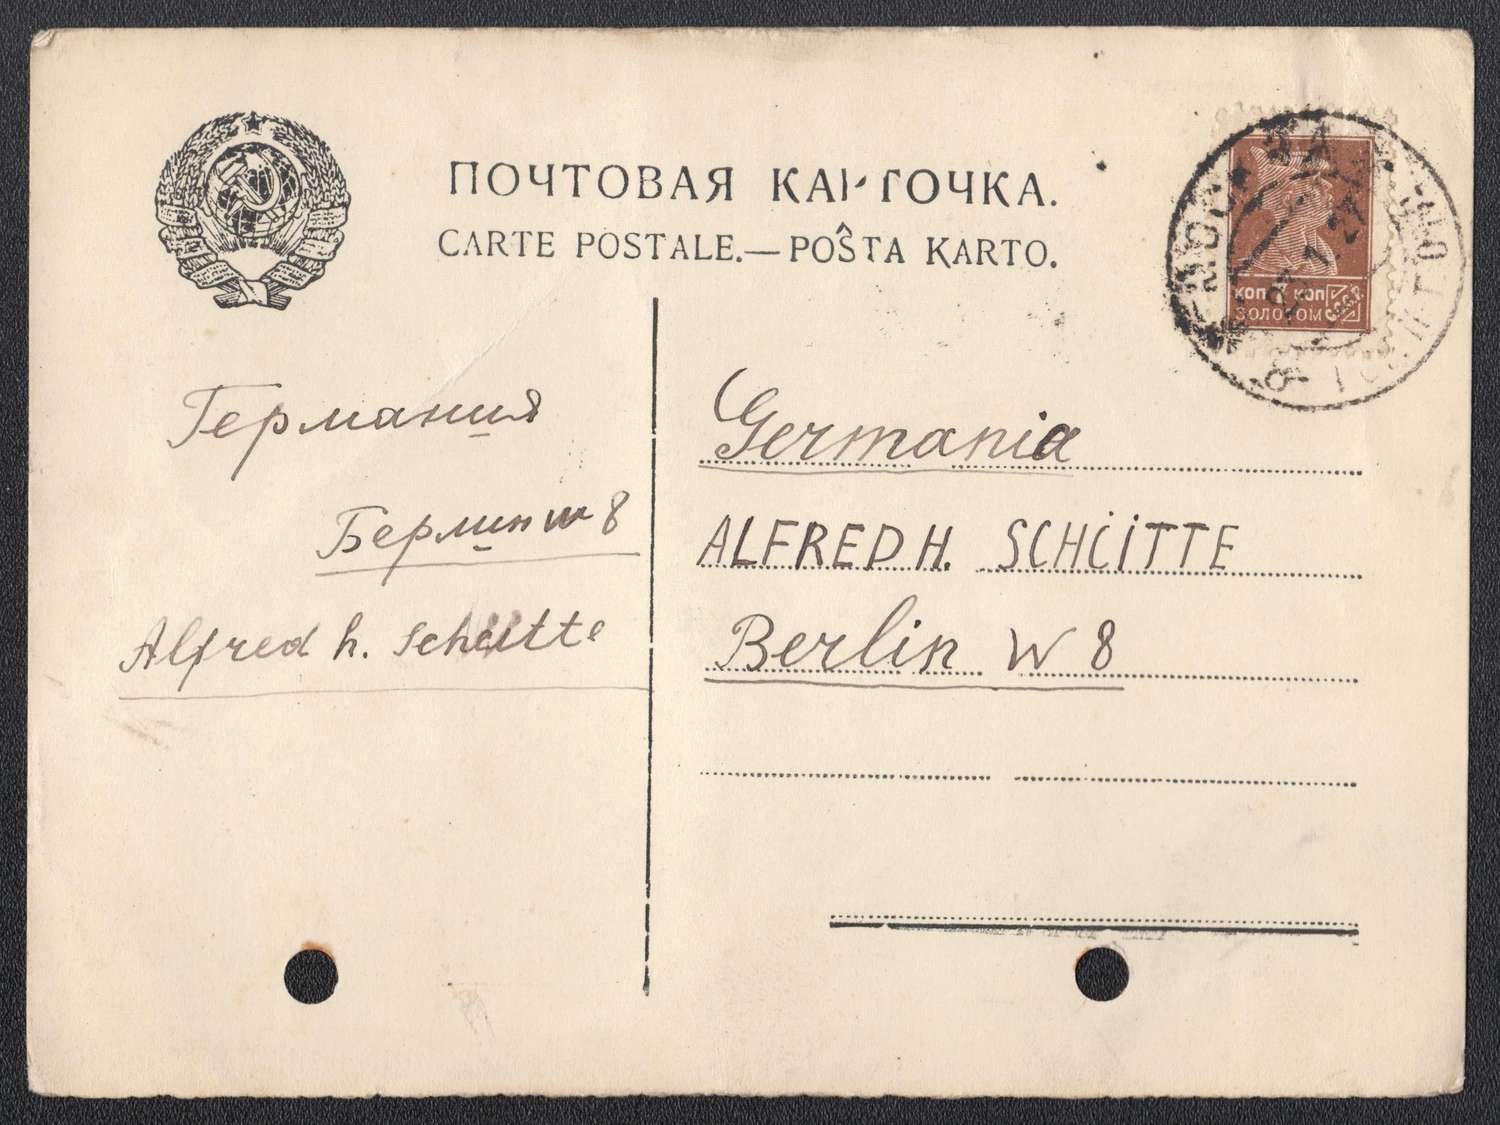 ПОЧТОВАЯ КАРТОЧКА.
CARTE POSTALE.—POŜTA KARTO.
КОП 7 КОП
ЗОЛОТОМ СССР.
Германия
Берлин W 8
Alfred h. Schütte
Germania
ALFRED H. SCHÜTTE
Berlin W 8